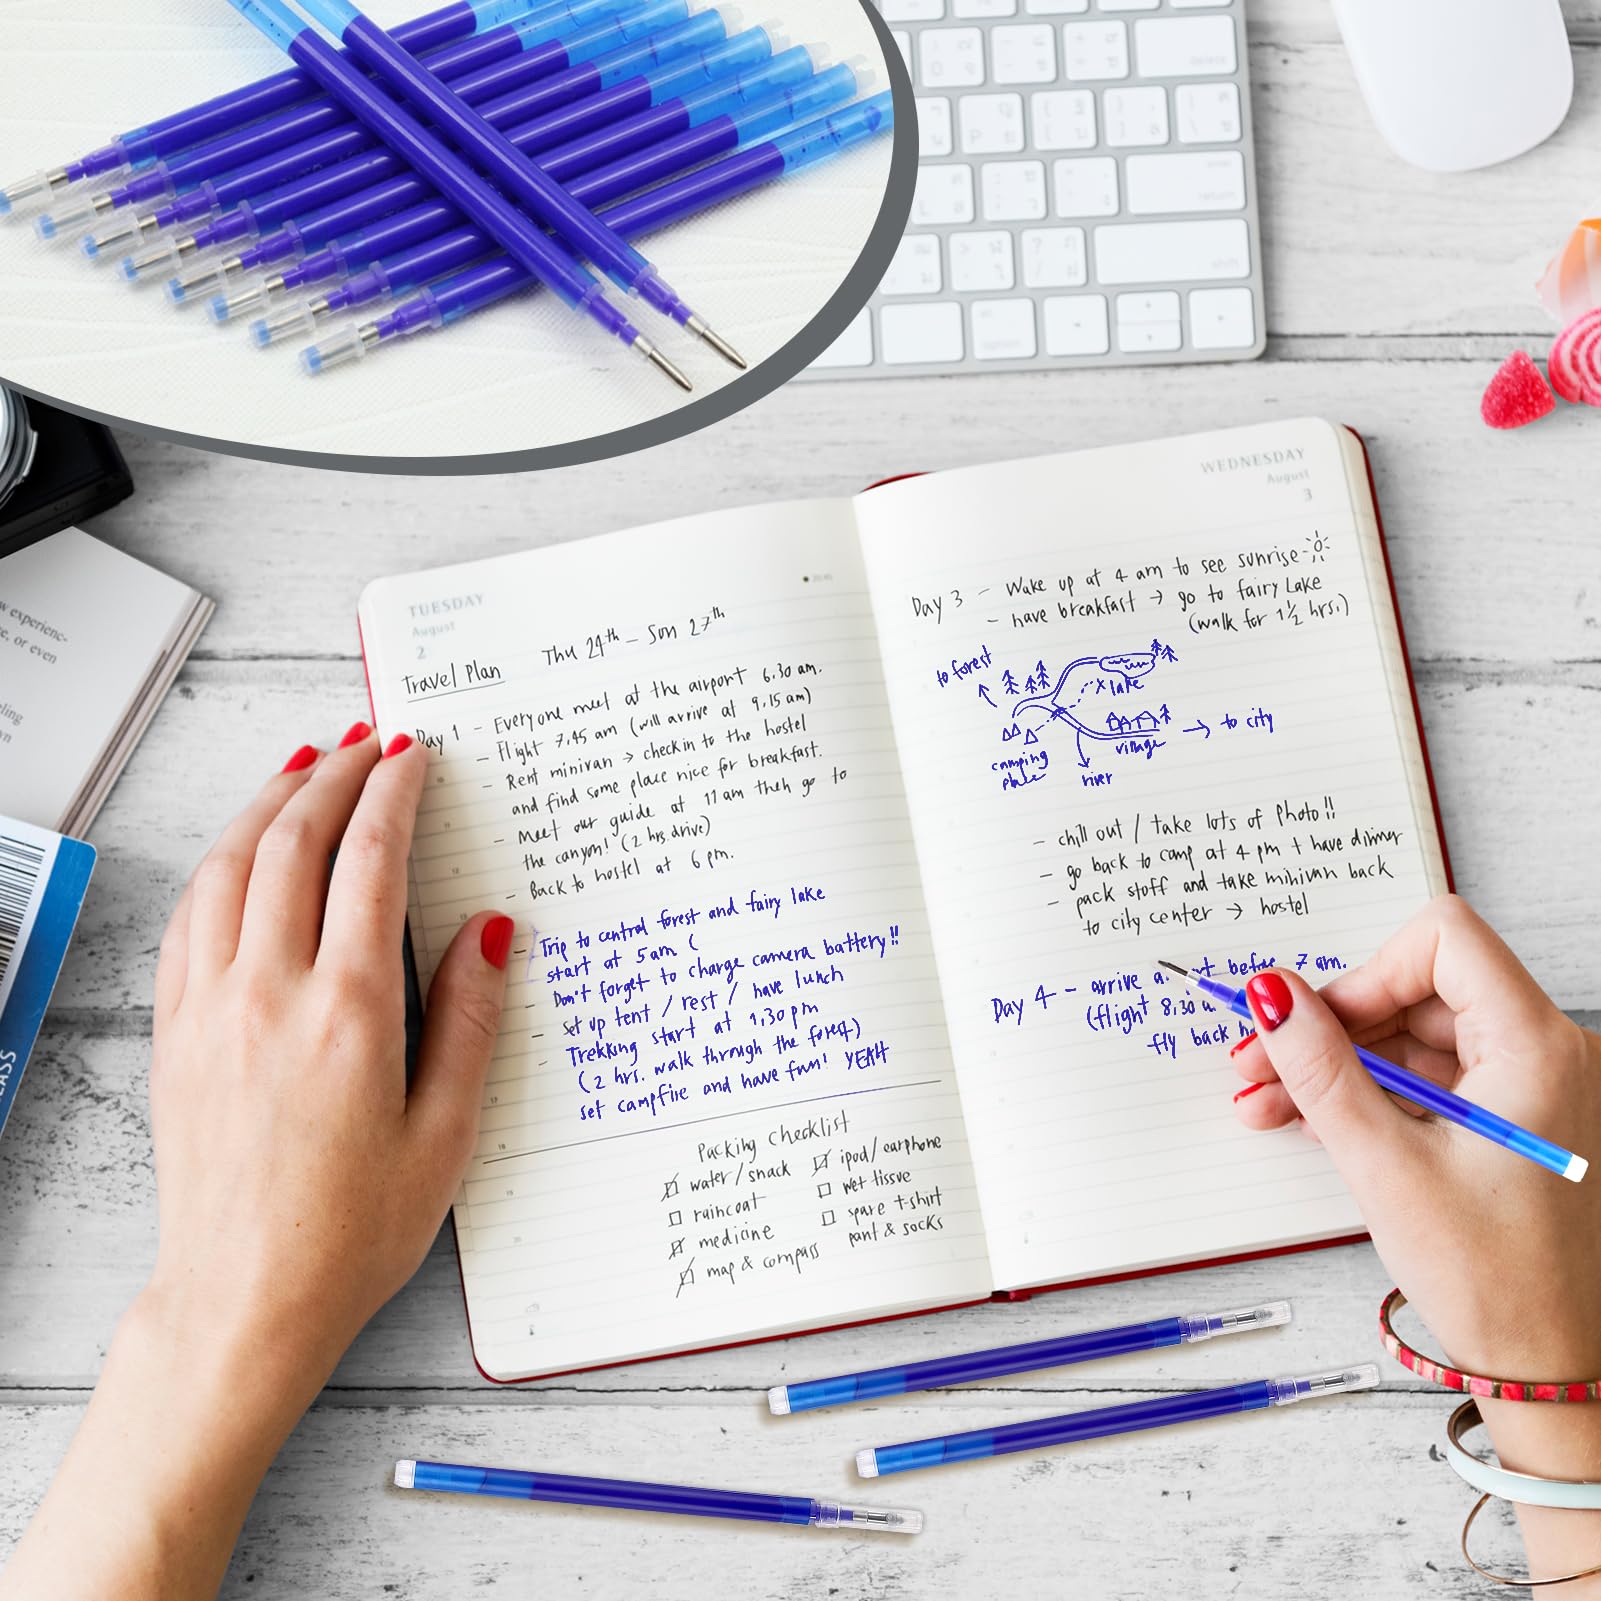 delete
return
shift
w experienc-
e, or even
eling
wn
CLASS
TUESDAY
August
2
Travel Plan
Thu 24th - Sun 27th
Day 1 - Everyone meet at the airport 6.30 am.
- Flight 7.45 am (will arrive at 9.15 am)
- Rent minivan → checkin to the hostel
and find some place nice for breakfast.
- Meet our guide at 11 am then go to
the canyon! (2 hrs. drive)
- Back to hostel at 6 pm.
- Trip to central forest and fairy lake
start at 5 am (
- Don't forget to charge camera battery!!
- set up tent / rest / have lunch
- Trekking start at 1.30 pm
(2 hrs. walk through the forest)
set campfire and have fun! YEAH
Packing Checklist
water / snack
raincoat
medicine
map & compass
ipod / earphone
wet tissue
spare t-shirt
pant & socks
WEDNESDAY
August
3
Day 3 - Wake up at 4 am to see sunrise
- have breakfast → go to fairy Lake
(walk for 1½ hrs.)
to forest
x lake
camping
place
village
→ to city
river
- chill out / take lots of photo!!
- go back to camp at 4 pm + have dinner
- pack stoff and take minivan back
to city center → hostel
Day 4 - arrive before 7 am.
(flight 8.30
fly back